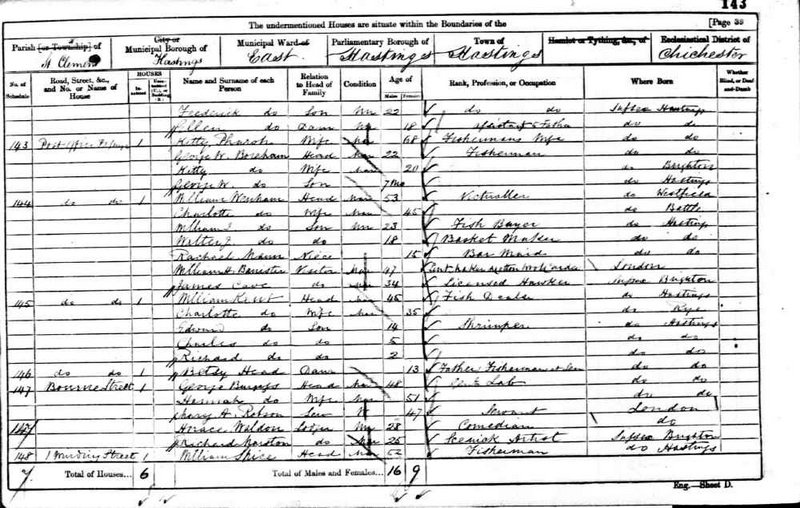 143
The undermentioned Houses are situate within the Boundaries of the
[Page 39
Parish [or Township] of St Clement
City or Municipal Borough of Hastings
Municipal Ward of East
Parliamentary Borough of Hastings
Town of Hastings
Hamlet or Tything, &c., of
Ecclesiastical District of Chichester
No. of Schedule
Road, Street, &c., and No. or Name of House
HOUSES
Name and Surname of each Person
Relation to Head of Family
Condition
Age of
Males
Females
Rank, Profession, or Occupation
Where Born
Whether
Blind, or Deaf-and-Dumb
Frederick do Son Un 22 do do Sussex Hastings
Ellen do Daur 18 do do
143 Post Office Passage 1 Kitty Pharoh Wife Mar 68 Fishermans Wife do do
George W. Boreham Head Mar 22 Fisherman do do
Kitty do Wife Mar 20 do Brighton
George W. do Son 7 Mo do Hastings
144 do do 1 William Wenham Head Mar 53 Victualler do Westfield
Charlotte do Wife Mar 45 do Battle
William do Son Un 23 Fish Buyer do Hastings
Walter J do do 18 Basket Maker do do
Rachael Mann Niece 15 Bar Maid do do
William H. Banester Visitor Mar 47 London
James Cave do 34 Licensed Hawker Brighton
145 do do 1 William Kent Head Mar 45 Fish Dealer do Hastings
Charlotte do Wife Mar 35 do Rye
Edward do Son 14 Shrimper do Hastings
Charles do do 5 do do
Richard do do 2 do do
146 do do 1 Betsy Head Daur 13 Father Fisherman at Sea do do
147 Bourne Street 1 George Burgess Head Mar 48 Lab do do
Hannah do Wife Mar 51 do do
Mary A. Robson Serv W 47 Servant London
147 Horace Waldon Lodger Un 28 Comedian do
Richard Marston do Mar 25 Scenick Artist Sussex Brighton
148 1 Street 1 William Spice Head Mar 52 Fisherman do Hastings
7 Total of Houses... 6
Total of Males and Females... 16 9
Eng.—Sheet D.